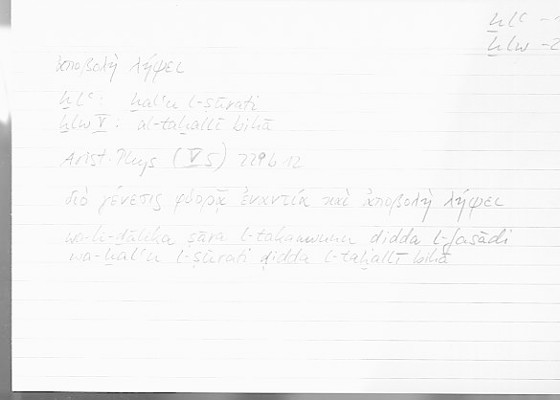 ẖlʿ -
ẖlw -2
ἀποβολὴ λήψει
ẖlʿ: ẖalʿu l-ṣūrati
ẖlw V: al-taẖallī bihā
Arist. Phys (V 5) 229b12
διὸ γένεσις φθορᾷ ἐναντία καὶ ἀποβολὴ λήψει
wa-li-ḏālika ṣāra l-takawwunu ḍidda l-fasādi
wa-ẖalʿu l-ṣūrati ḍidda l-taẖallī bihā